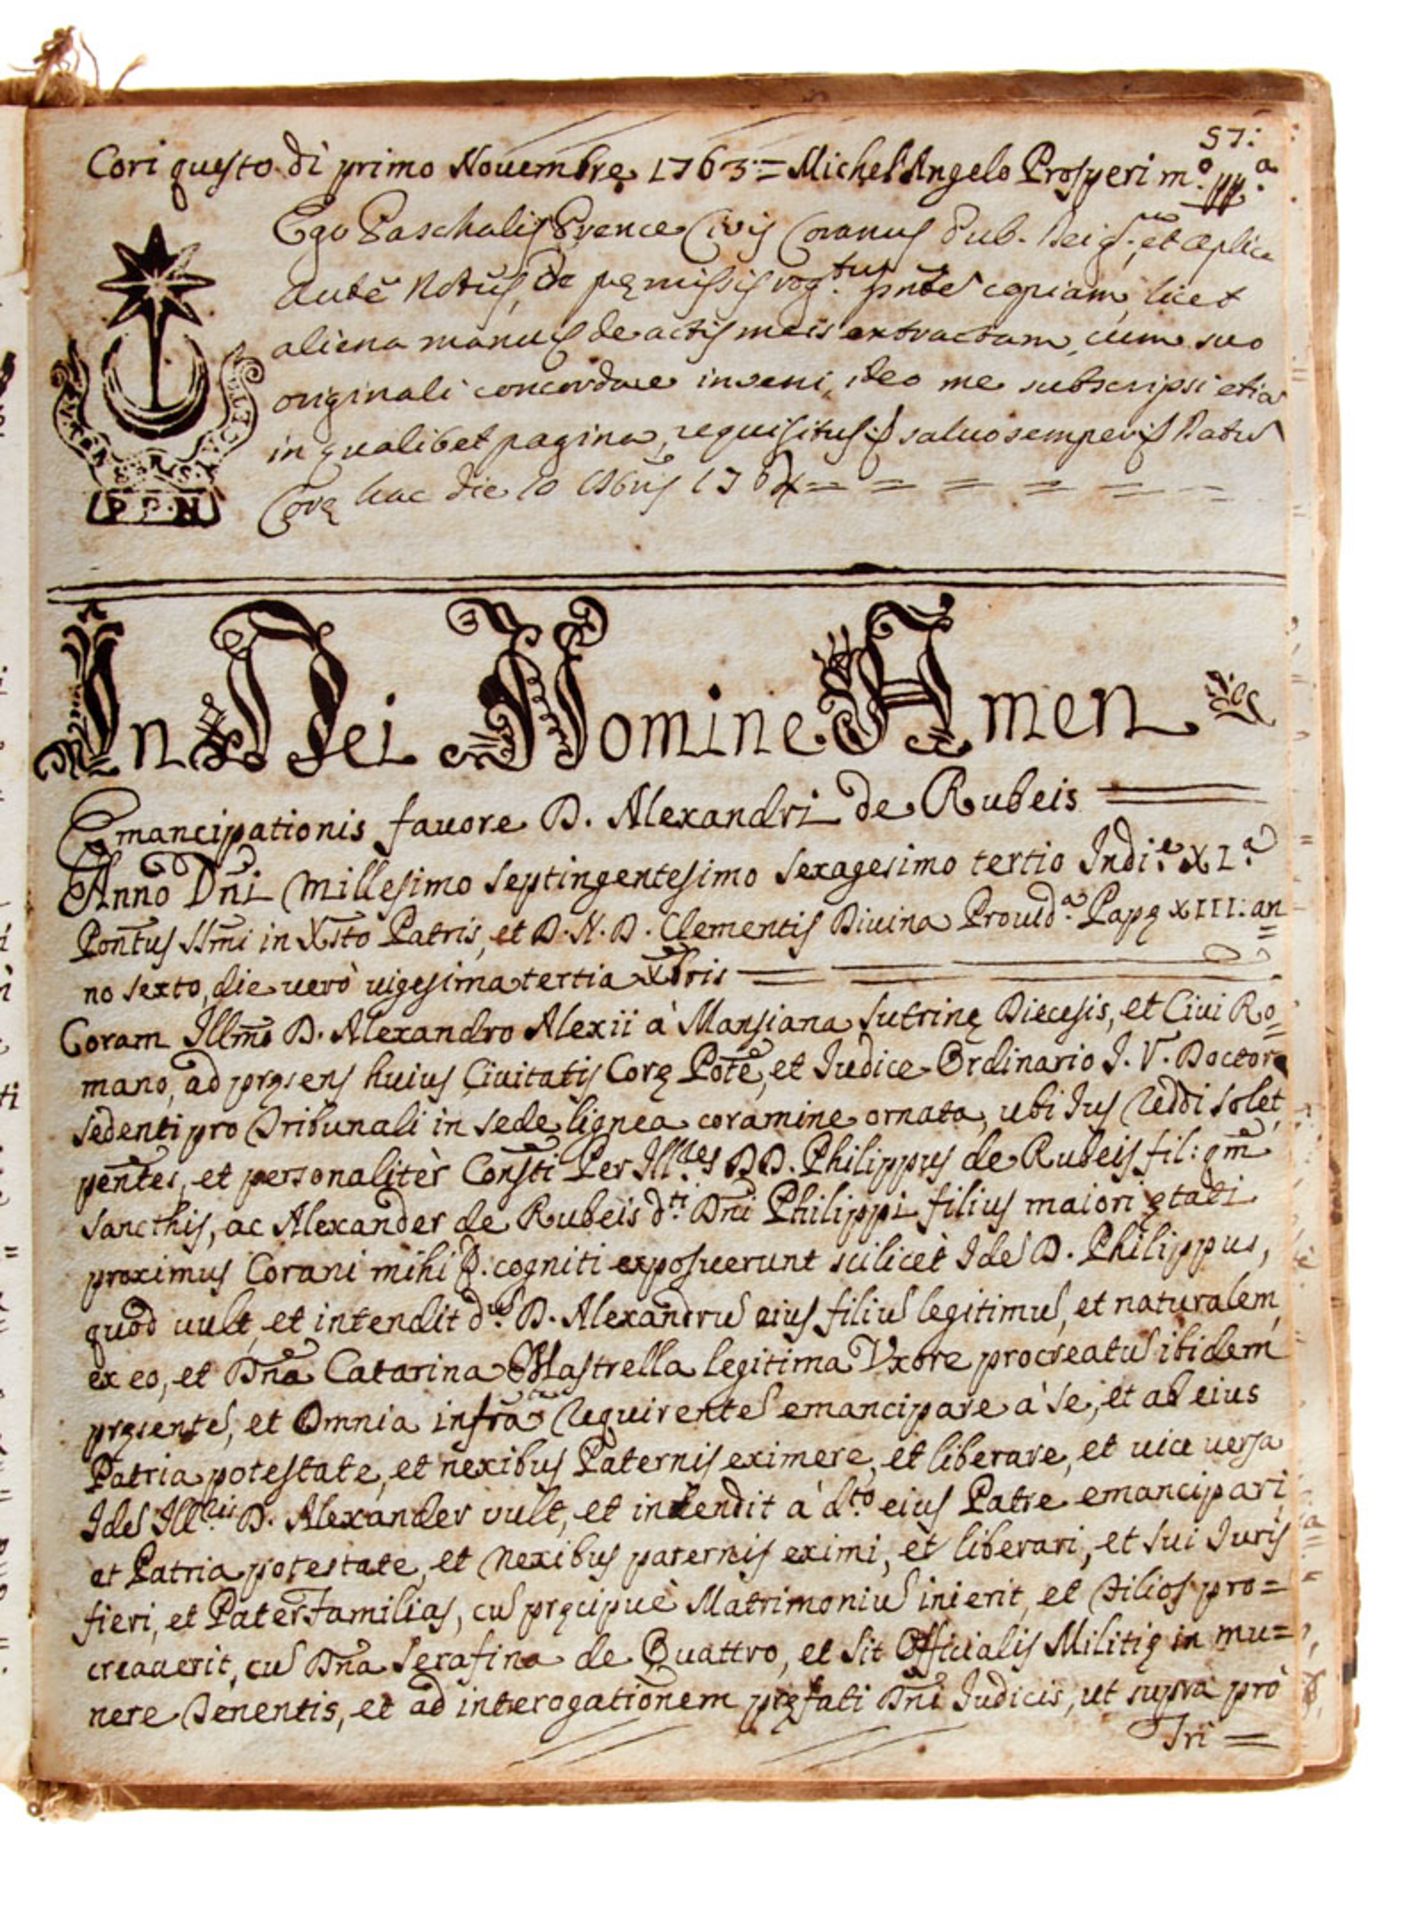 57:
Cori questo dì primo Novembre 1763 = Michel'Angelo Prosperi m.º pp.ª
Ego Paschalis Prence Civis Coranus Pub. et Aplica
Autẽ Notus, de pręmissis rog.tus pñtẽ copiam, licet
aliena manu de actis meis extractam, cum suo
originali concordare inveni, ideo me subscripsi etiã
in qualibet pagina, requisitus saluo semper Datũ
Corę hac die 10 1764 = = = = = =
P P. N
In Dei Nomine Amen
Emancipationis favore D. Alexandri de Rubeis
Anno Dñi Millesimo Septingentesimo Sexagesimo tertio Indi.e XI.a
Pontus SSmi in Xsto Patris, et D. N. D. Clementis Divina Provid.a Papę XIII: an=
no sexto, die verò vigesima tertia Xbris
Coram Illmo D. Alexandro Alexii à Mansiana Sutrinę Diecesis, et Civi Ro=
mano, ad pręsens huius Civitatis Corę Potẽ, et Iudice Ordinario I. V. Doctore
sedenti pro Tribunali in sede lignea coramine ornata, ubi Ius Reddi solet,
pentes, et personalitèr Consti Per Ill.tes DD. Philippus de Rubeis fil: qm̃
Sancthis, ac Alexander de Rubeis d.ti Dñi Philippi filius maiori ętati
proximus Corani mihi cogniti exposuerunt scilicèt Idẽ D. Philippus,
quod vult, et intendit d.um D. Alexandrũ eius filiũ legitimũ, et naturalem,
ex eo, et Dña Catarina Mastrella legitima Uxore procreatũ ibidem
pręsentẽ, et Omnia infrãta Requirentẽ emancipare à se, et ab eius
Patria potestate, et nexibus Paternis eximere, et liberare, et vice versa
Idẽ Ill.ris D. Alexander vult, et intendit à d.to eius Patre emancipari,
et Patria potestate, et nexibus paternis eximi, et liberari, et sui Iuris
fieri, et Pater Familias, cũ pręcipuè Matrimoniũ inierit, et Filios pro=
creaverit, cũ Dña Serafina de Quattro, et sit Officialis Militię in mu=
nere Tenentis, et ad interogationem pręfati Dñi Iudicis, ut supra pro
Tri =